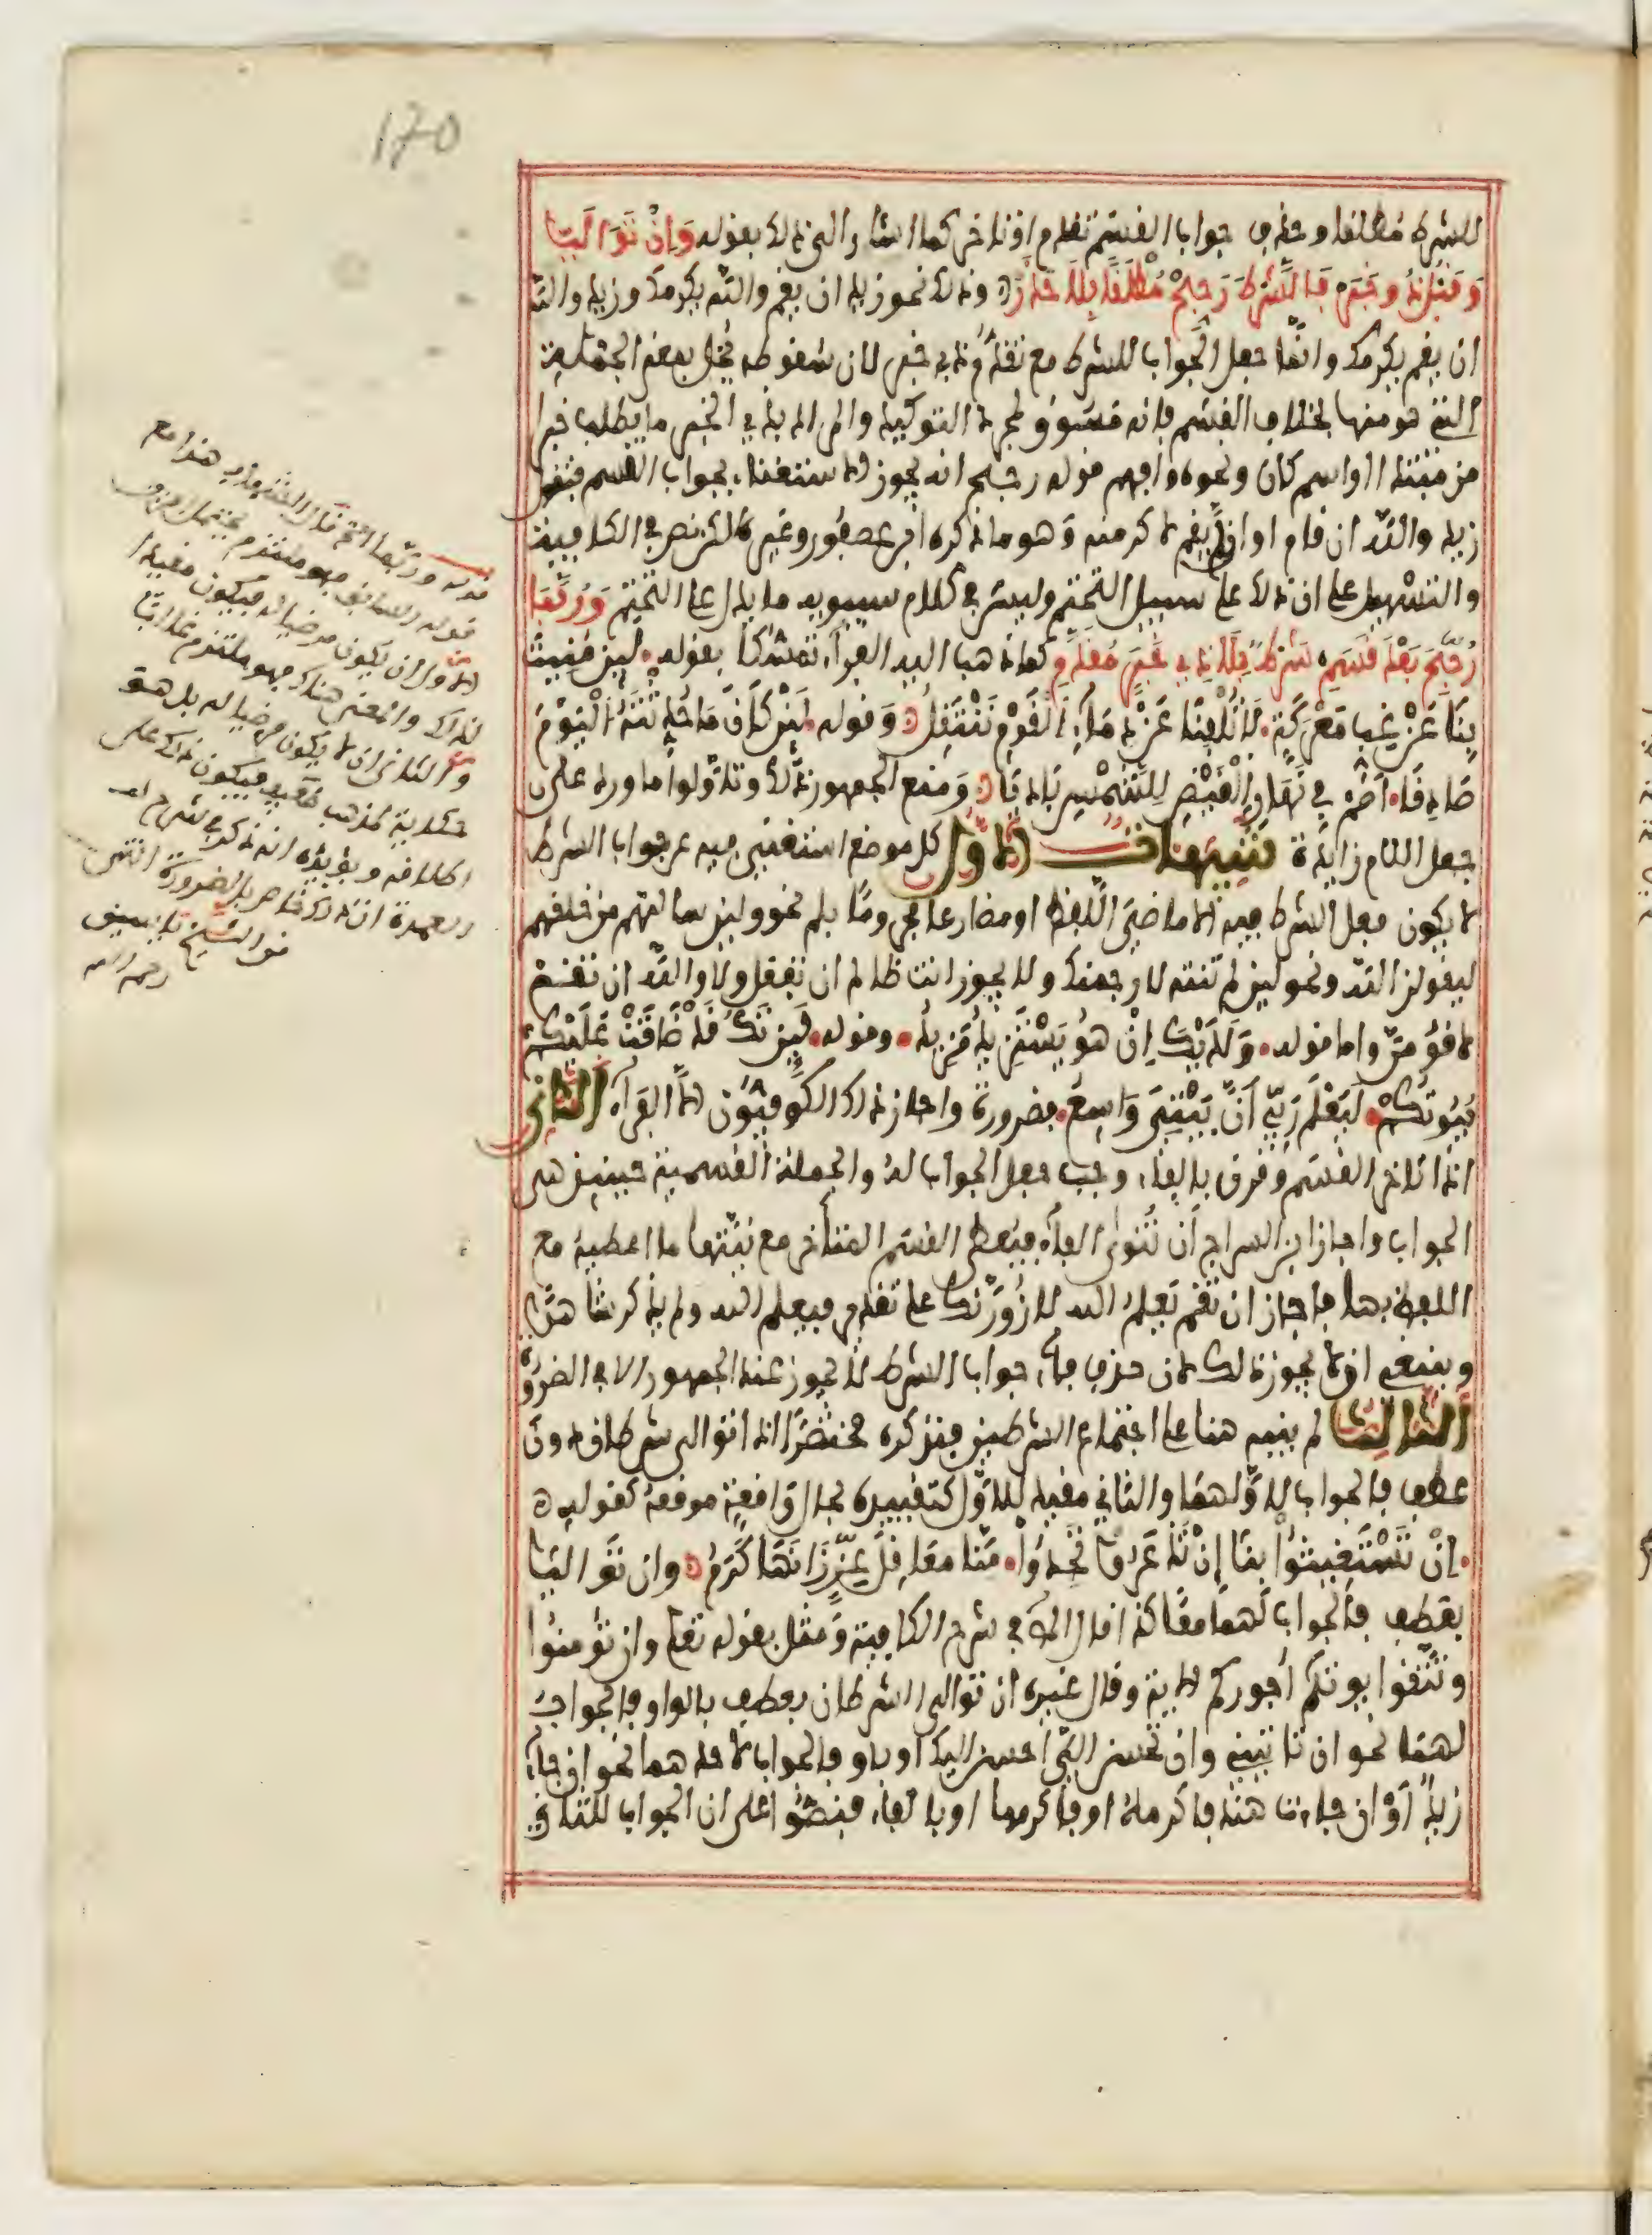 170
للشرط مطلقا وحذف جواب القسم تقدم او تاخر كما اشار الى ذلك بقوله وَاِنْ تَوَالَيَا
وَقَبْلُ ذُو خَبَرٍ فَالشَّرْطَ رَجِّحْ مُطْلَقًا بِلَا حَذَرْ وذلك نحو زيد ان يقم والله يكرمك وزيد والله
ان يقم يكرمك وانما جعل الجواب للشرط مع تقدم ذي خبر لان سقوطه مخل بمعنى الجملة
التي هو منها بخلاف القسم فانه مسوق لمجرد التوكيد والمراد بذي الخبر ما يطلب خبرا
من مبتدا او اسم كان ونحوه وافهم قوله رجح انه يجوز الاستغناء بجواب القسم فتقول
زيد والله ان قام او ان لم يقم لاكرمنه وهو ما ذكره ابن عصفور وغيره لكن نص في الكافية
والتسهيل على ان ذلك على سبيل التحتم وليس في كلام سيبويه ما يدل على التحتم وَرُبَّمَا
رُجِّحَ بَعْدَ قَسَمِ شَرْطٌ بِلَا ذِي خَبَرٍ مُقَدَّمِ كما ذهب اليه الفراء تمسكا بقوله لَئِن مُنِيتَ
بِنَا عَنْ غِبِّ مَعْرَكَةٍ لَا تُلْفِنَا عَنْ دِمَاءِ القَوْمِ نَنْتَفِلُ وقوله لَئِنْ كَانَ مَا حُدِّثْتَهُ الْيَوْمَ
صَادِقًا اَصُمْ فِي نَهَارِ الْقَيْضِ لِلشَّمْسِ بَادِيَا ومنع الجمهور ذلك وتاولوا ما ورد على
جعل اللام زايدة تنبيهات الاول كل موضع استغني فيه عن جواب الشرط
لا يكون فعل الشرط فيه الا ماضي اللفظ او مضارعا مجزوما بلم نحو ولين سالتهم من خلقهم
ليقولن الله ونحو لين لم تنته لارجمنك ولا يجوز انت ظالم ان تفعل ولا والله ان تقم
لاقومن واما قوله وَلَدَيْكَ اِنْ هُوَ يَسْتَزِدْكَ مَزِيدُ وقوله لَئِن تَكُ قَدْ ضَاقَتْ عَلَيْكُمْ
بُيُوتُكُمْ لَيَعْلَمُ رَبِّي اَنَّ بَيْتِيَ وَاسِعُ فضرورة واجاز ذلك الكوفيون الا الفراء الثاني
اذا تاخر القسم وقرن بالفاء وجب جعل الجواب له والجملة القسمية حينيذ هي
الجواب واجاز ابن السراج ان تنوى الفاء فيعطى القسم المتاخر مع نيتها ما اعطيه مع
اللفظ بها فاجاز ان تقم يعلم الله لازورنك على تقدير فيعلم الله ولم يذكر شاهدا
وينبغي ان لا يجوز ذلك لان حذف فاء جواب الشرط لا يجوز عند الجمهور الا في الضرورة
الثالث لم ينبه هنا على اجتماع الشرطين فنذكره مختصرا اذا توالى شرطان دون
عطف فالجواب لاولهما والثاني مقيد للاول كتقييده بحال واقعة موقعه كقوله
اِنْ تَسْتَغِيثُوا بِنَا إِنْ تُذْعَرُوا تَجِدُوا مِنَّا مَعَاقِلَ عِزٍّ زَانَهَا كَرَمُ وان تواليا
بعطف فالجواب لهما معا كذا قال الم في شرح الكافية ومثل بقوله تعلى وان تومنوا
وتتقوا يوتكم اجوركم الاية وقال غيره ان توالى الشرطان بعطف بالواو فالجواب
لهما نحو ان تاتيني وان تحسن الي احسن اليك او باو فالجواب لاحدهما نحو ان جاء
زيد اَوْ ان جاءت هند فاكرمه او فاكرمها او بالفاء فنصوا على ان الجواب للثاني
قوله وربما الخ قال الشهاب هذا مع
قوله السابق فهو ملتزم يحتمل امرين
الاول ان يكون مرضيا له فيكون مقيدا
لذاك والمعنى هناك فهو ملتزم غالبا
والثاني ان لا يكون مرضيا له بل هو
حكاية لمذهب ضعيف فيكون ذاك على
اطلاقه ويؤيده انه ذكر في شرح
العمدة ان ذلك خاص بالضرورة انتهى
من الشيخ ياسين
رحمه الله